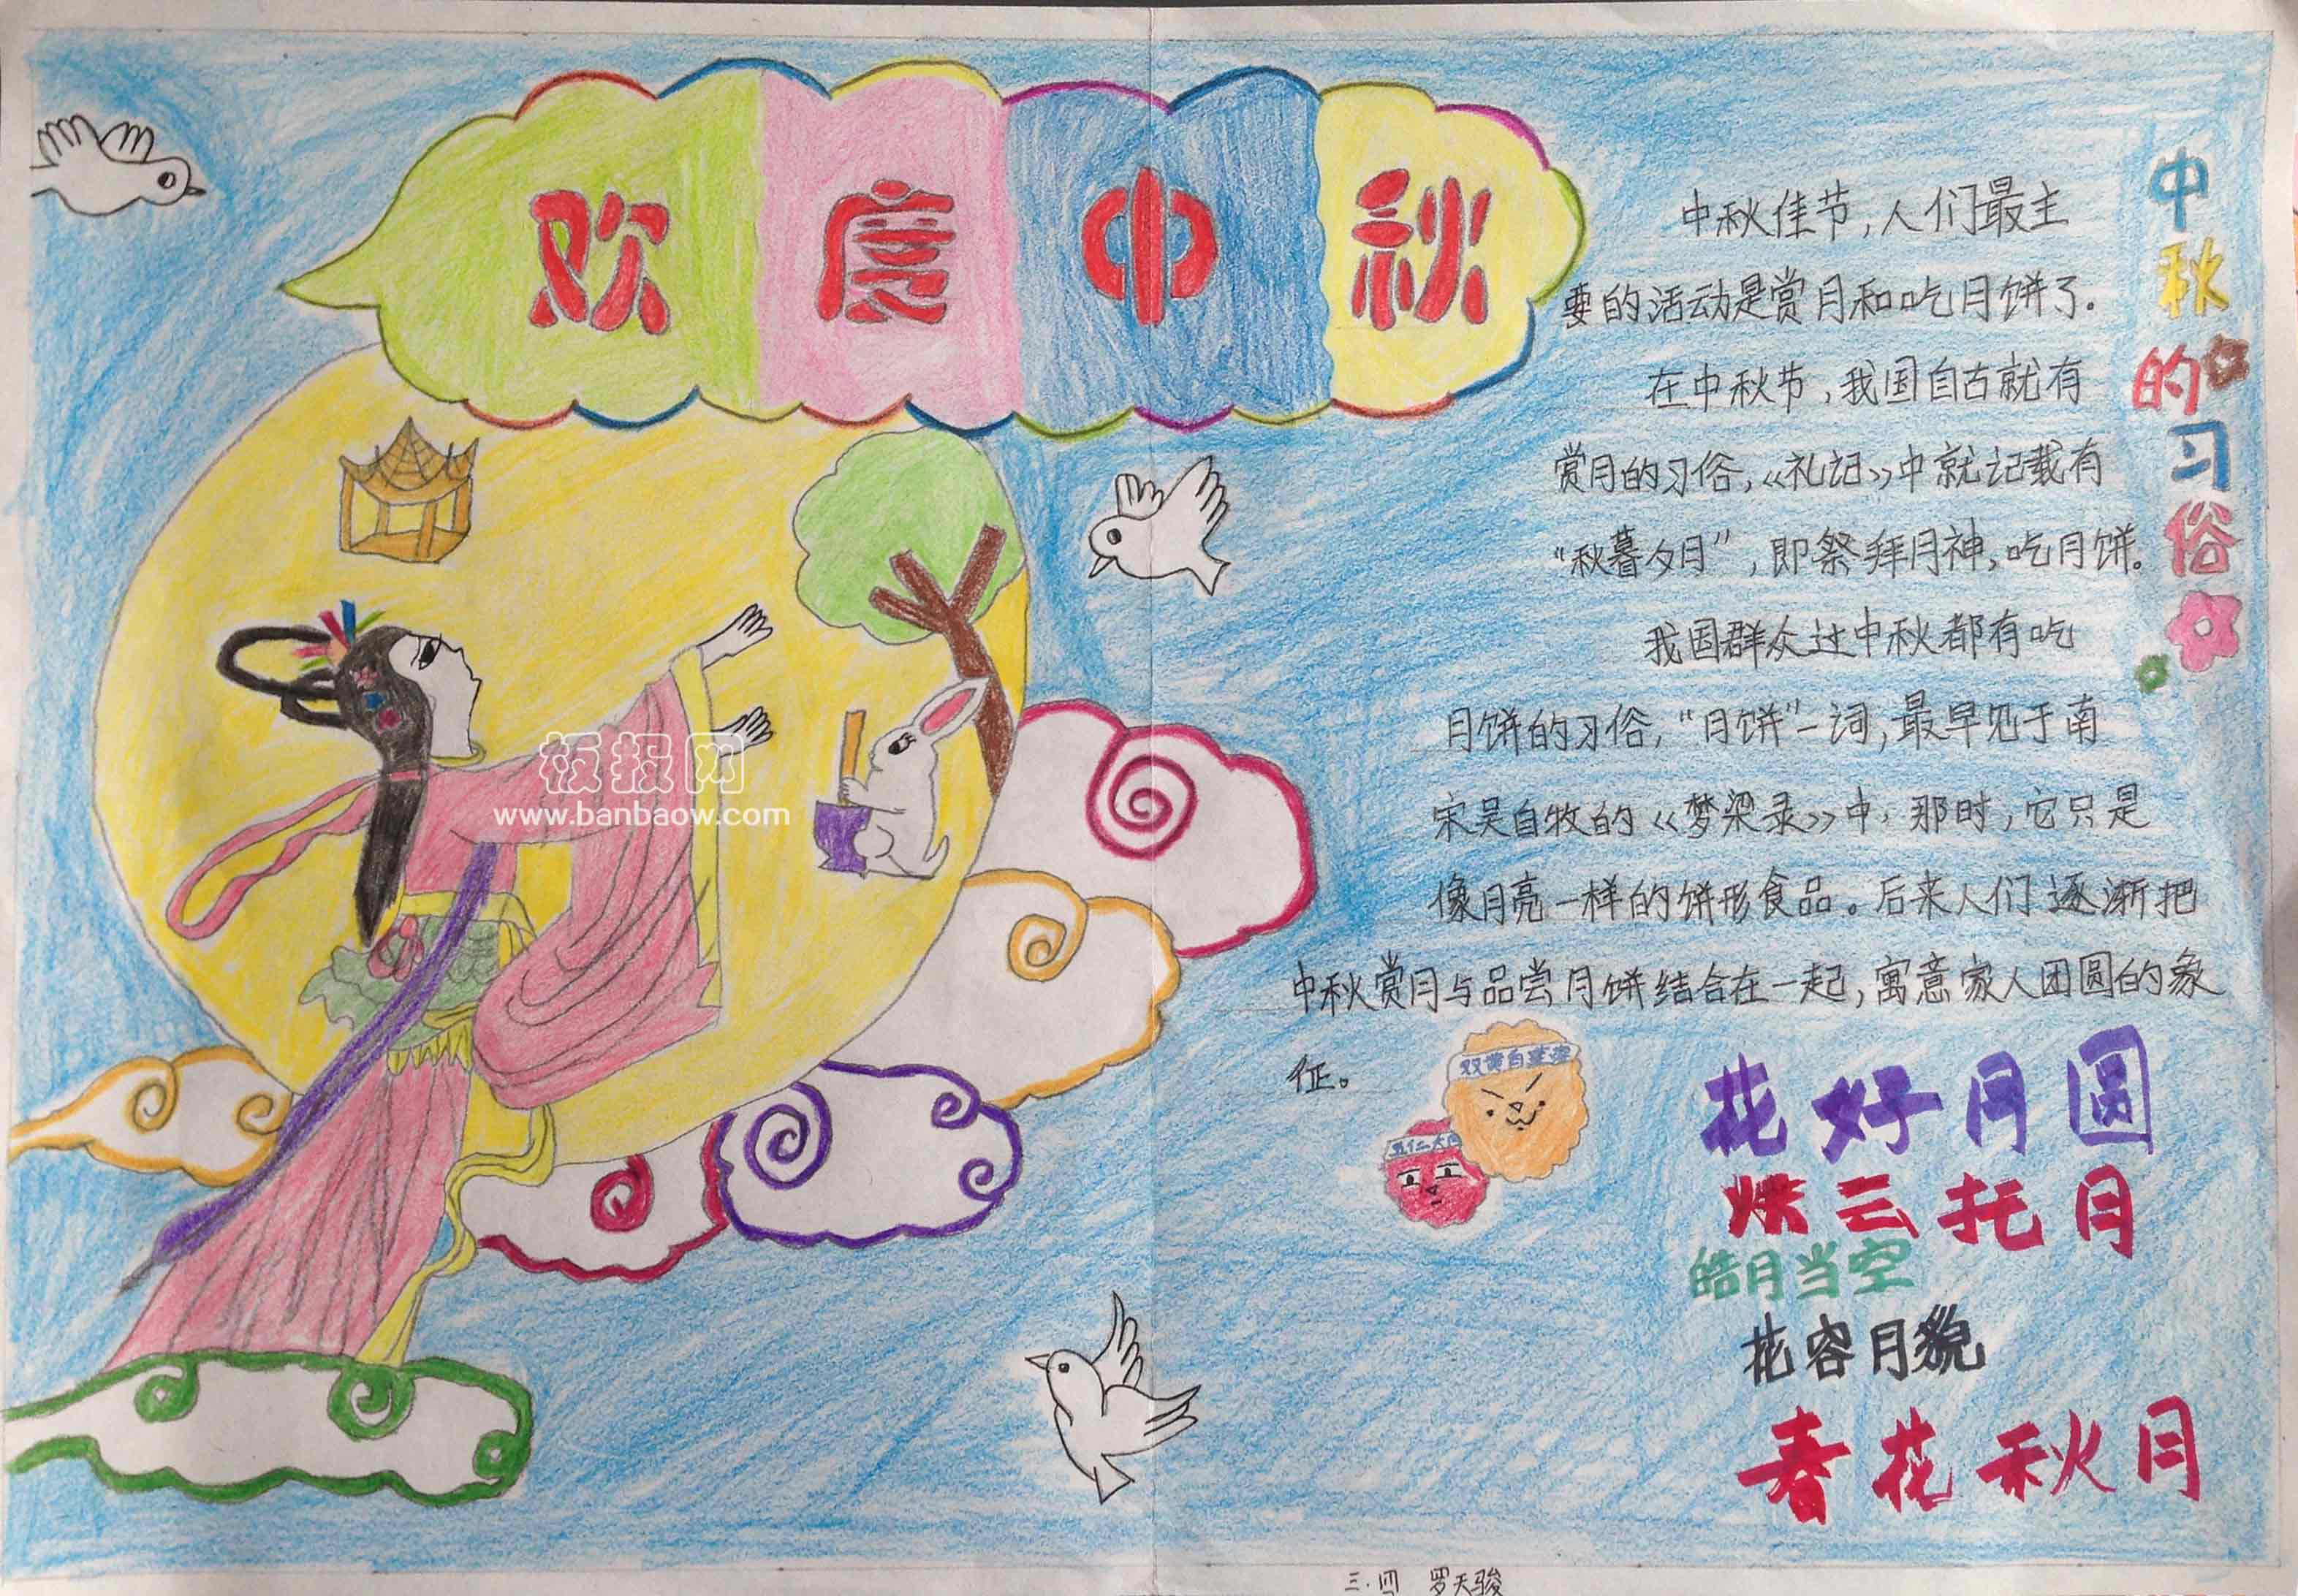 欢度中秋
中秋的习俗
中秋佳节,人们最主
要的活动是赏月和吃月饼了.
在中秋节,我国自古就有
赏月的习俗,《礼记》中就记载有
“秋暮夕月”,即祭拜月神,吃月饼。
我国群众过中秋都有吃
月饼的习俗,“月饼”一词,最早见于南
宋吴自牧的《梦梁录》中,那时,它只是
像月亮一样的饼形食品。后来人们逐渐把
中秋赏月与品尝月饼结合在一起,寓意家人团圆的象
征。
双黄白莲蓉
五仁大
花好月圆
烘云托月
皓月当空
花容月貌
春花秋月
板报网
www.banbaow.com
三.四 罗天骏